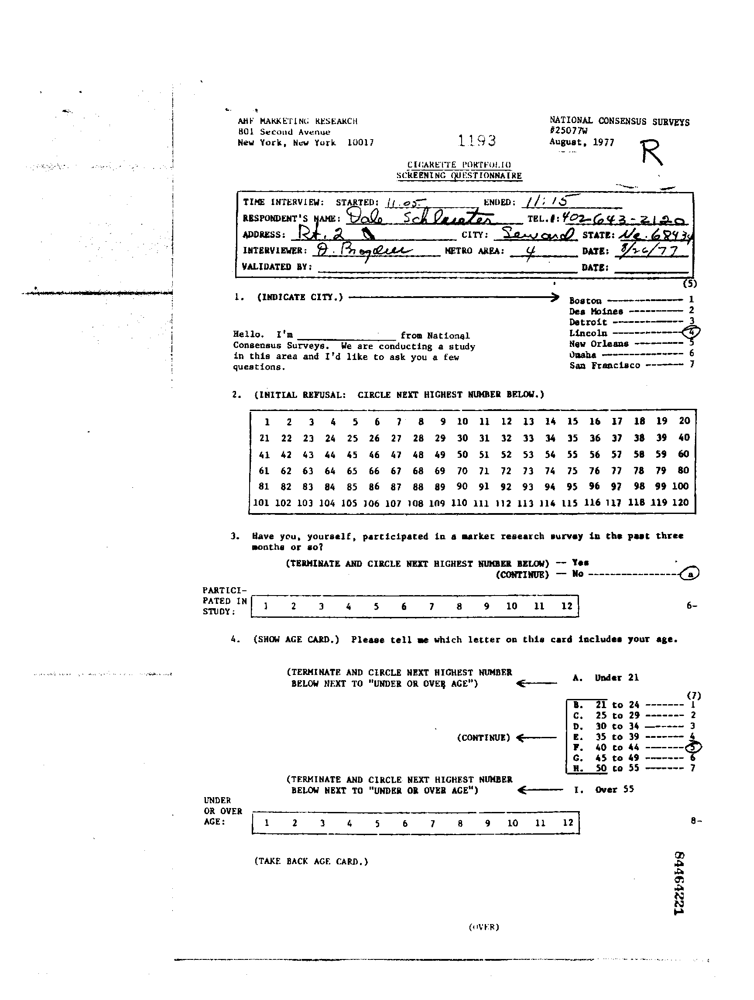 AHF MARKETING RESEARCH
801 Second Avenue
New York, New York 10017
1193
NATIONAL CONSENSUS SURVEYS
#25077W
August, 1977
R
CIGARETTE PORTFOLIO
SCREENING QUESTIONNAIRE
TIME INTERVIEW: STARTED: 11:05 ENDED: 11:15
RESPONDENT'S NAME: Dale TEL.#: 402-643-2120
ADDRESS: Rt. 2 CITY: Seward STATE: Ne. 68434
INTERVIEWER: METRO AREA: 4 DATE: 8/26/77
VALIDATED BY: DATE:
(5)
1. (INDICATE CITY.)
Boston ---------- 1
Des Moines ---------- 2
Detroit ---------- 3
Lincoln ---------- 4
New Orleans ---------- 5
Omaha ---------- 6
San Francisco ------- 7
Hello. I'm ____________ from National
Consensus Surveys. We are conducting a study
in this area and I'd like to ask you a few
questions.
2. (INITIAL REFUSAL: CIRCLE NEXT HIGHEST NUMBER BELOW.)
1 2 3 4 5 6 7 8 9 10 11 12 13 14 15 16 17 18 19 20
21 22 23 24 25 26 27 28 29 30 31 32 33 34 35 36 37 38 39 40
41 42 43 44 45 46 47 48 49 50 51 52 53 54 55 56 57 58 59 60
61 62 63 64 65 66 67 68 69 70 71 72 73 74 75 76 77 78 79 80
81 82 83 84 85 86 87 88 89 90 91 92 93 94 95 96 97 98 99 100
101 102 103 104 105 106 107 108 109 110 111 112 113 114 115 116 117 118 119 120
3. Have you, yourself, participated in a market research survey in the past three
months or so?
(TERMINATE AND CIRCLE NEXT HIGHEST NUMBER BELOW) -- Yes
(CONTINUE) -- No ----------------
PARTICI-
PATED IN
STUDY:
1 2 3 4 5 6 7 8 9 10 11 12
6-
4. (SHOW AGE CARD.) Please tell me which letter on this card includes your age.
(TERMINATE AND CIRCLE NEXT HIGHEST NUMBER
BELOW NEXT TO "UNDER OR OVER AGE")
A. Under 21
(7)
B. 21 to 24 ------- 1
C. 25 to 29 ------- 2
D. 30 to 34 ------- 3
(CONTINUE)
E. 35 to 39 ------- 4
F. 40 to 44 ------- 5
G. 45 to 49 ------- 6
H. 50 to 55 ------- 7
(TERMINATE AND CIRCLE NEXT HIGHEST NUMBER
BELOW NEXT TO "UNDER OR OVER AGE")
I. Over 55
UNDER
OR OVER
AGE:
1 2 3 4 5 6 7 8 9 10 11 12
8-
(TAKE BACK AGE CARD.)
84464221
(OVER)